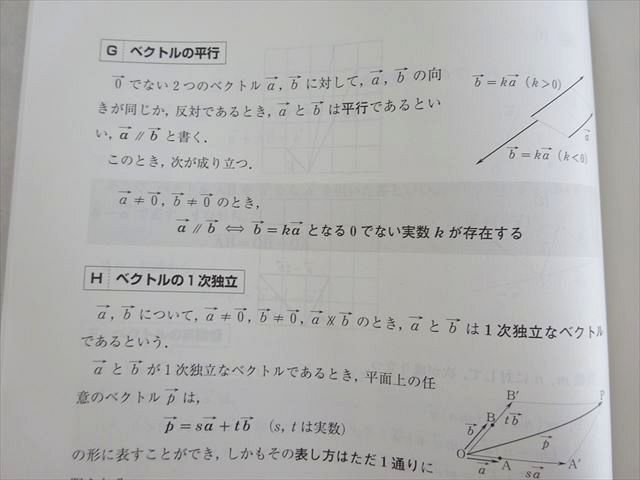 G ベクトルの平行
$\vec{0}$ でない2つのベクトル $\vec{a}$, $\vec{b}$ に対して, $\vec{a}$, $\vec{b}$ の向
きが同じか, 反対であるとき, $\vec{a}$ と $\vec{b}$ は平行であるとい
い, $\vec{a} /\!/ \vec{b}$ と書く.
このとき, 次が成り立つ.
$\vec{b} = k\vec{a}$ (k>0)
$\vec{a}$
$\vec{b} = k\vec{a}$ (k<0)
$\vec{a} \neq \vec{0}$, $\vec{b} \neq \vec{0}$ のとき,
$\vec{a} /\!/ \vec{b} \iff \vec{b} = k\vec{a}$ となる0でない実数 k が存在する
H ベクトルの1次独立
$\vec{a}$, $\vec{b}$ について, $\vec{a} \neq \vec{0}$, $\vec{b} \neq \vec{0}$, $\vec{a} \not/\!/ \vec{b}$ のとき, $\vec{a}$ と $\vec{b}$ は1次独立なベクトル
であるという.
$\vec{a}$ と $\vec{b}$ が1次独立なベクトルであるとき, 平面上の任
意のベクトル $\vec{p}$ は,
$\vec{p} = s\vec{a} + t\vec{b}$ (s, t は実数)
の形に表すことができ, しかもその表し方はただ1通りに
B′
P
B
$t\vec{b}$
$\vec{b}$
$\vec{p}$
O
$\vec{a}$
A
$s\vec{a}$
A′